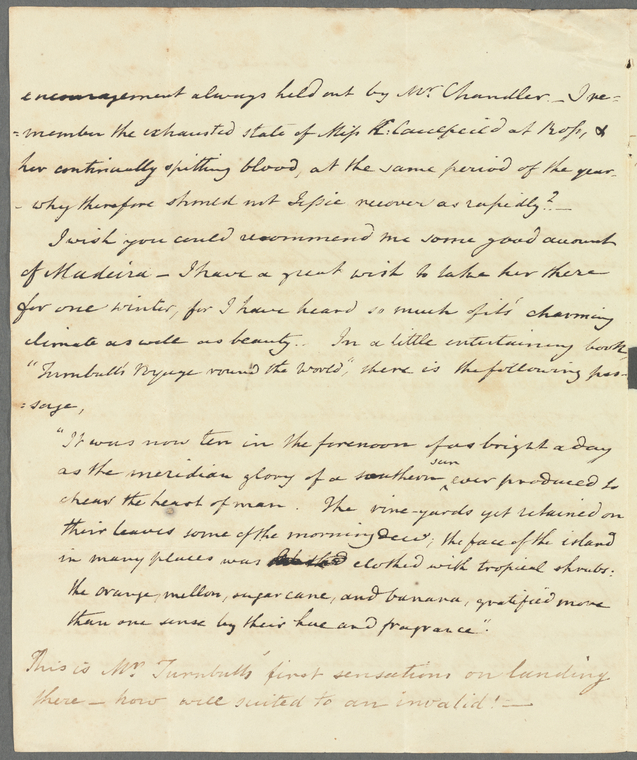 encouragement always held out by Mr. Chandler_ I re=
=member the exhausted state of Miss K. Caulfeild at Ross, &
her continually spitting blood, at the same period of the year_
- why therefore should not Jessie recover as rapidly?_
I wish you could recommend me some good account
of Madeira_ I have a great wish to take her there
for one winter, for I have heard so much of its' charming
climate as well as beauty.. In a little entertaining book,
"Turnbull's Voyage round the World", there is the following pas-
=sage,
"It was now ten in the forenoon of as bright a day
as the meridian glory of a southern sun ever produced to
chear the heart of man. The vine-yards yet retained on
their leaves some of the morning dew; the face of the island
in many places was clothed with tropical shrubs:
the orange, mellon, sugar cane, and banana, gratified more
than one sense by their hue and fragrance".
This is Mr. Turnbull's' first sensations on landing
there_ how well suited to an invalid!_